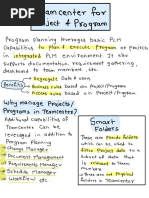 Teamcenter for
Project & Program
Program planning leverages basic PLM
Capabilities to Plan & Execute Program or Projects
in integrated PLM environment. It also
Supports documentation, requirement gathering,
dashboard, etc.
Benefits
→ Segregate Data & users
→ Business Rules based on Project/Program
→ Access control based on Project/Program
Why manage Projects/
Programs in Teamcenter?
Additional capabilities of
Teamcenter Can be
leveraged in addition to
Program Planning
→ Change Manager
→ Document Management
→ Requirements Manager
→ Schedule Manager
→ Workflow etc.
Smart
Folders
These are Pseudo folders
which can be used to
Project related data
to a
Subset of data that
is relevant to
There are not Physical
Folders in Teamcenter